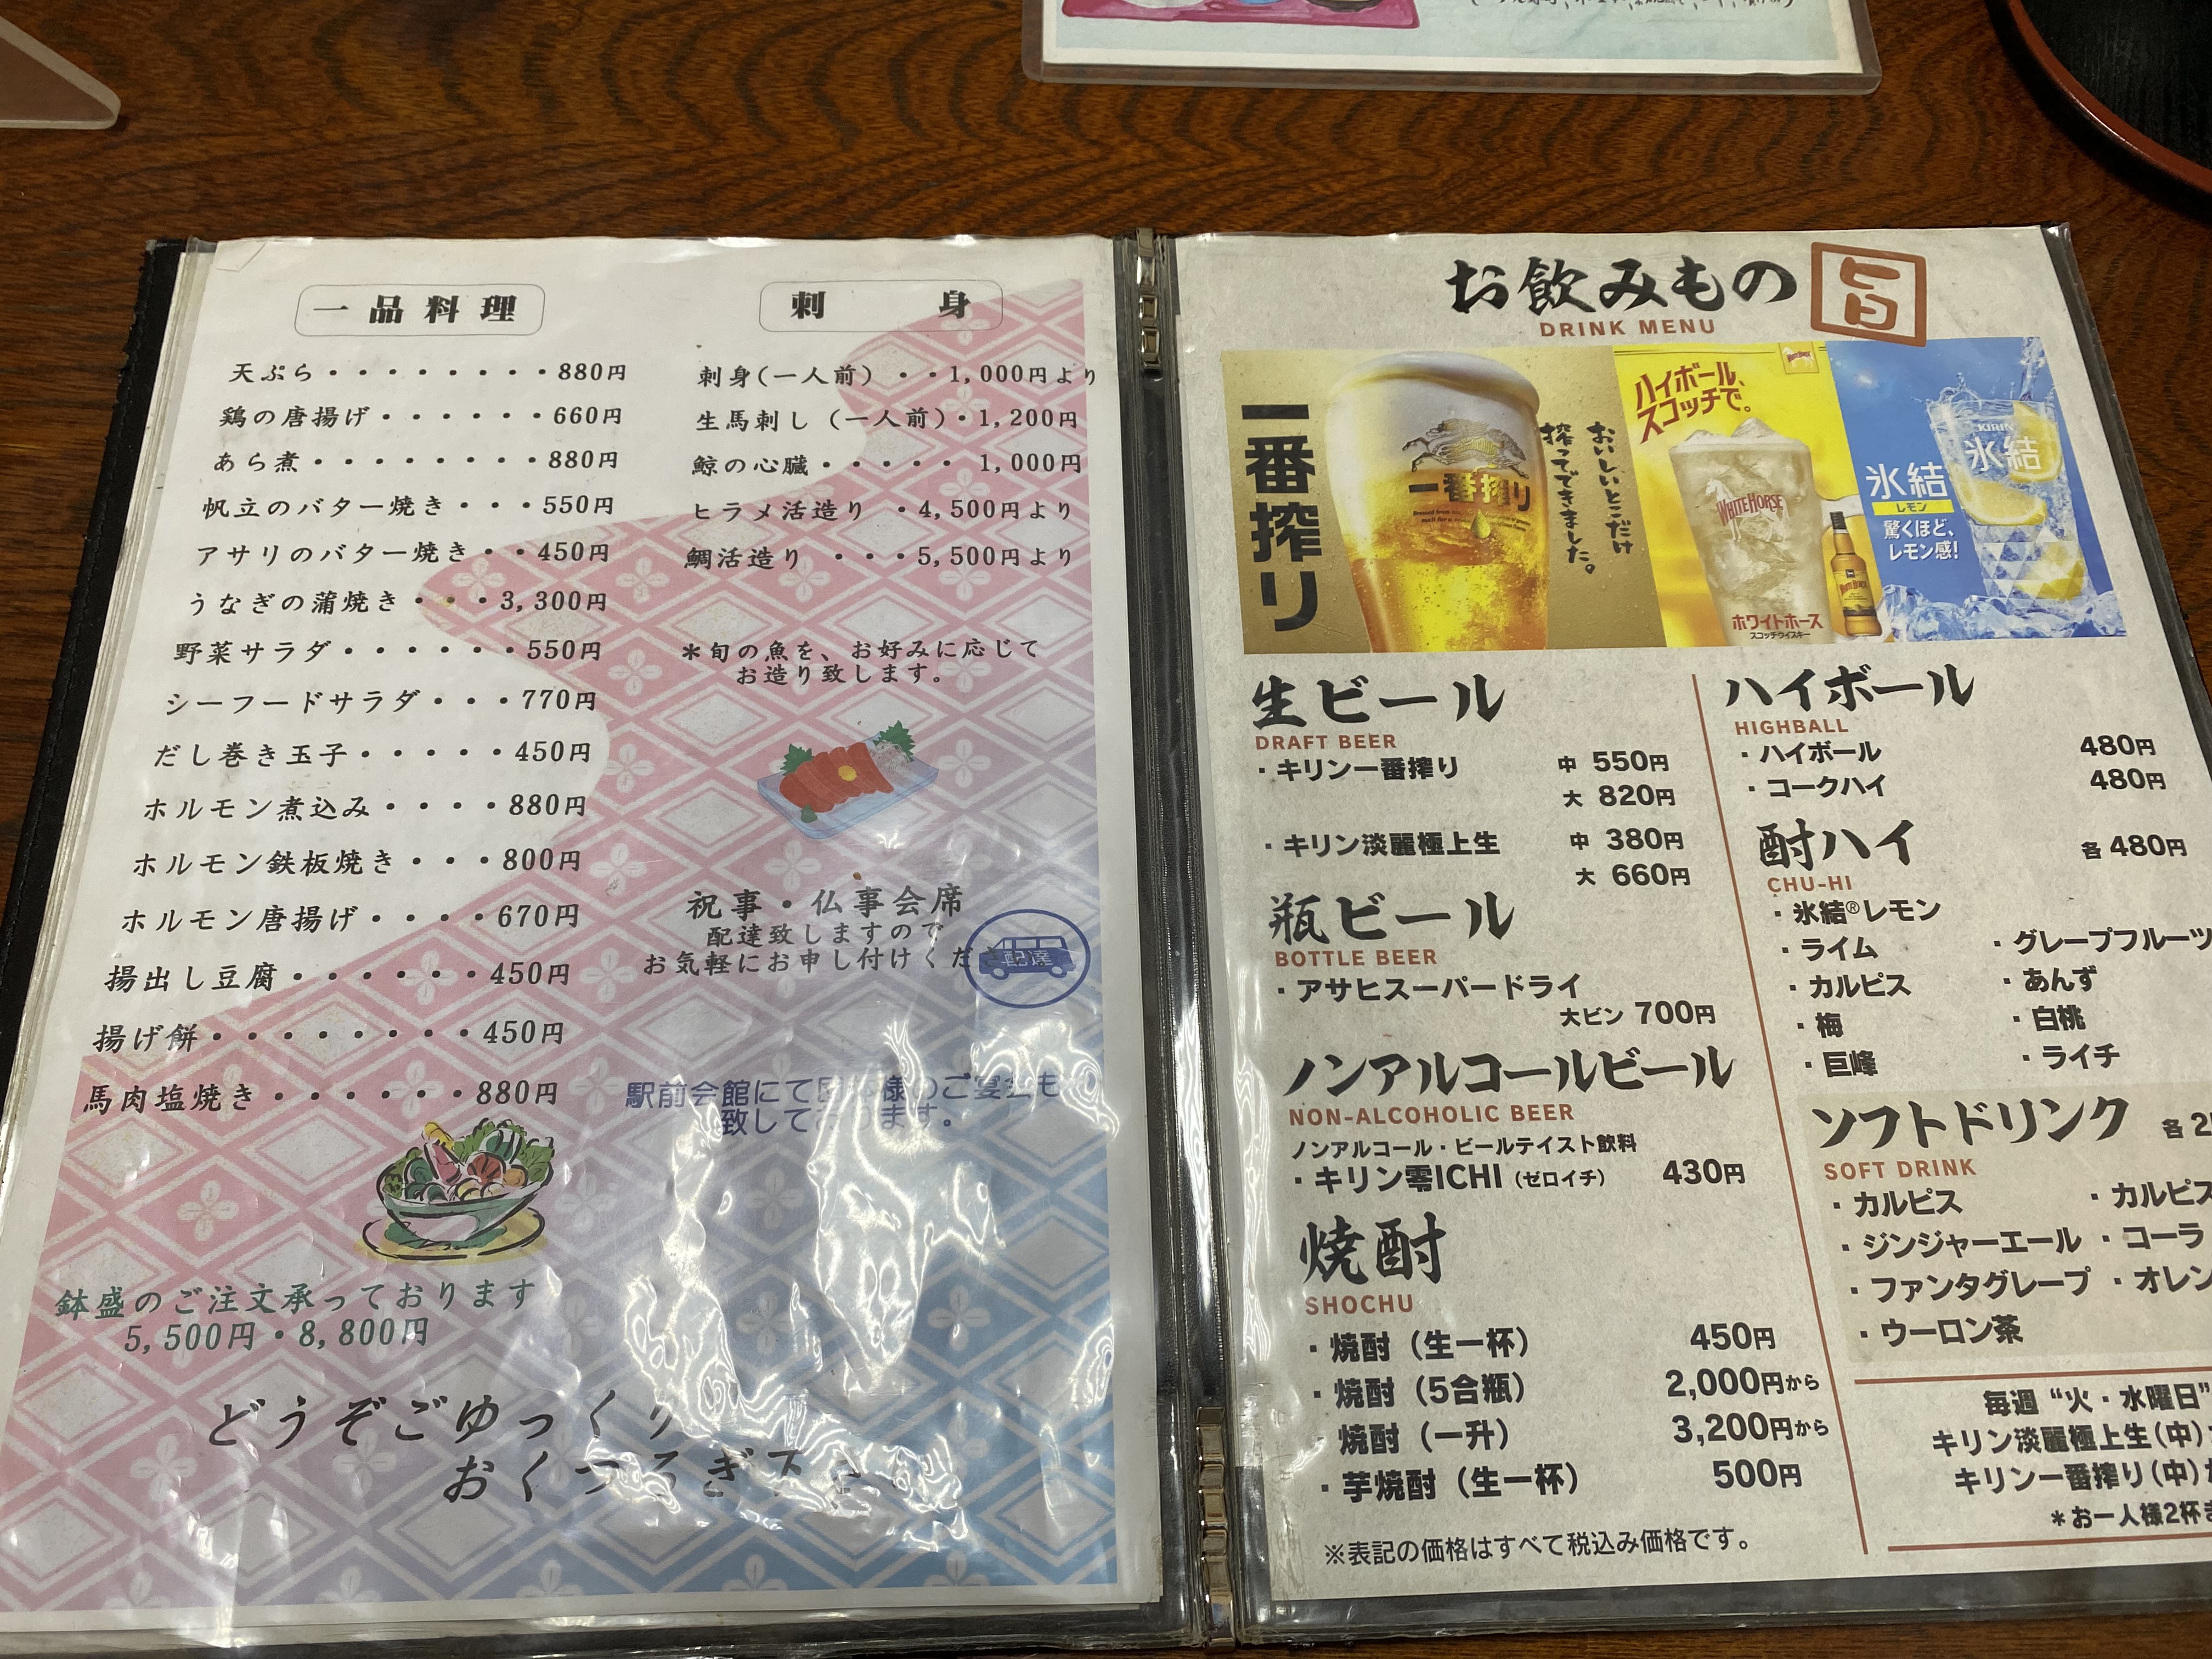 一品料理
天ぷら・・・・・・・・・880円
鶏の唐揚げ・・・・・・・660円
あら煮・・・・・・・・・880円
帆立のバター焼き・・・550円
アサリのバター焼き・・450円
うなぎの蒲焼き・・・3,300円
野菜サラダ・・・・・・550円
シーフードサラダ・・・770円
だし巻き玉子・・・・・450円
ホルモン煮込み・・・・880円
ホルモン鉄板焼き・・・800円
ホルモン唐揚げ・・・・670円
揚出し豆腐・・・・・・450円
揚げ餅・・・・・・・・450円
馬肉塩焼き・・・・・・880円
鉢盛のご注文承っております
5,500円・8,800円
刺身
刺身(一人前)・・1,000円より
生馬刺し(一人前)・1,200円
鯨の心臓・・・・・1,000円
ヒラメ活造り・4,500円より
鯛活造り・・・5,500円より
*旬の魚を、お好みに応じて
お造り致します。
祝事・仏事会席
配達致しますので
お気軽にお申し付けくださ
配達
駅前会館にて
致して
どうぞごゆっくり
お飲みもの
旨
DRINK MENU
一番搾り
一番搾り
おいしいとこだけ
搾ってできました。
ハイボール、
スコッチで。
WHITE HORSE
ホワイトホース
スコッチウイスキー
KIRIN
氷結
氷結
レモン
驚くほど、
レモン感!
生ビール
DRAFT BEER
・キリン一番搾り 中 550円
大 820円
・キリン淡麗極上生 中 380円
大 660円
瓶ビール
BOTTLE BEER
・アサヒスーパードライ
大ビン 700円
ノンアルコールビール
NON-ALCOHOLIC BEER
ノンアルコール・ビールテイスト飲料
・キリン零ICHI(ゼロイチ) 430円
焼酎
SHOCHU
・焼酎(生一杯) 450円
・焼酎(5合瓶) 2,000円から
焼酎(一升) 3,200円から
・芋焼酎(生一杯) 500円
※表記の価格はすべて税込み価格です。
ハイボール
HIGHBALL
・ハイボール 480円
・コークハイ 480円
酎ハイ 各480円
CHU-HI
・氷結®レモン
・ライム ・グレープフルーツ
・カルピス ・あんず
・梅 ・白桃
・巨峰 ・ライチ
ソフトドリンク 各2
SOFT DRINK
・カルピス ・カルピス
・ジンジャーエール ・コーラ
・ファンタグレープ ・オレン
・ウーロン茶
毎週“火・水曜日”
キリン淡麗極上生(中)
キリン一番搾り(中)
*お一人様2杯